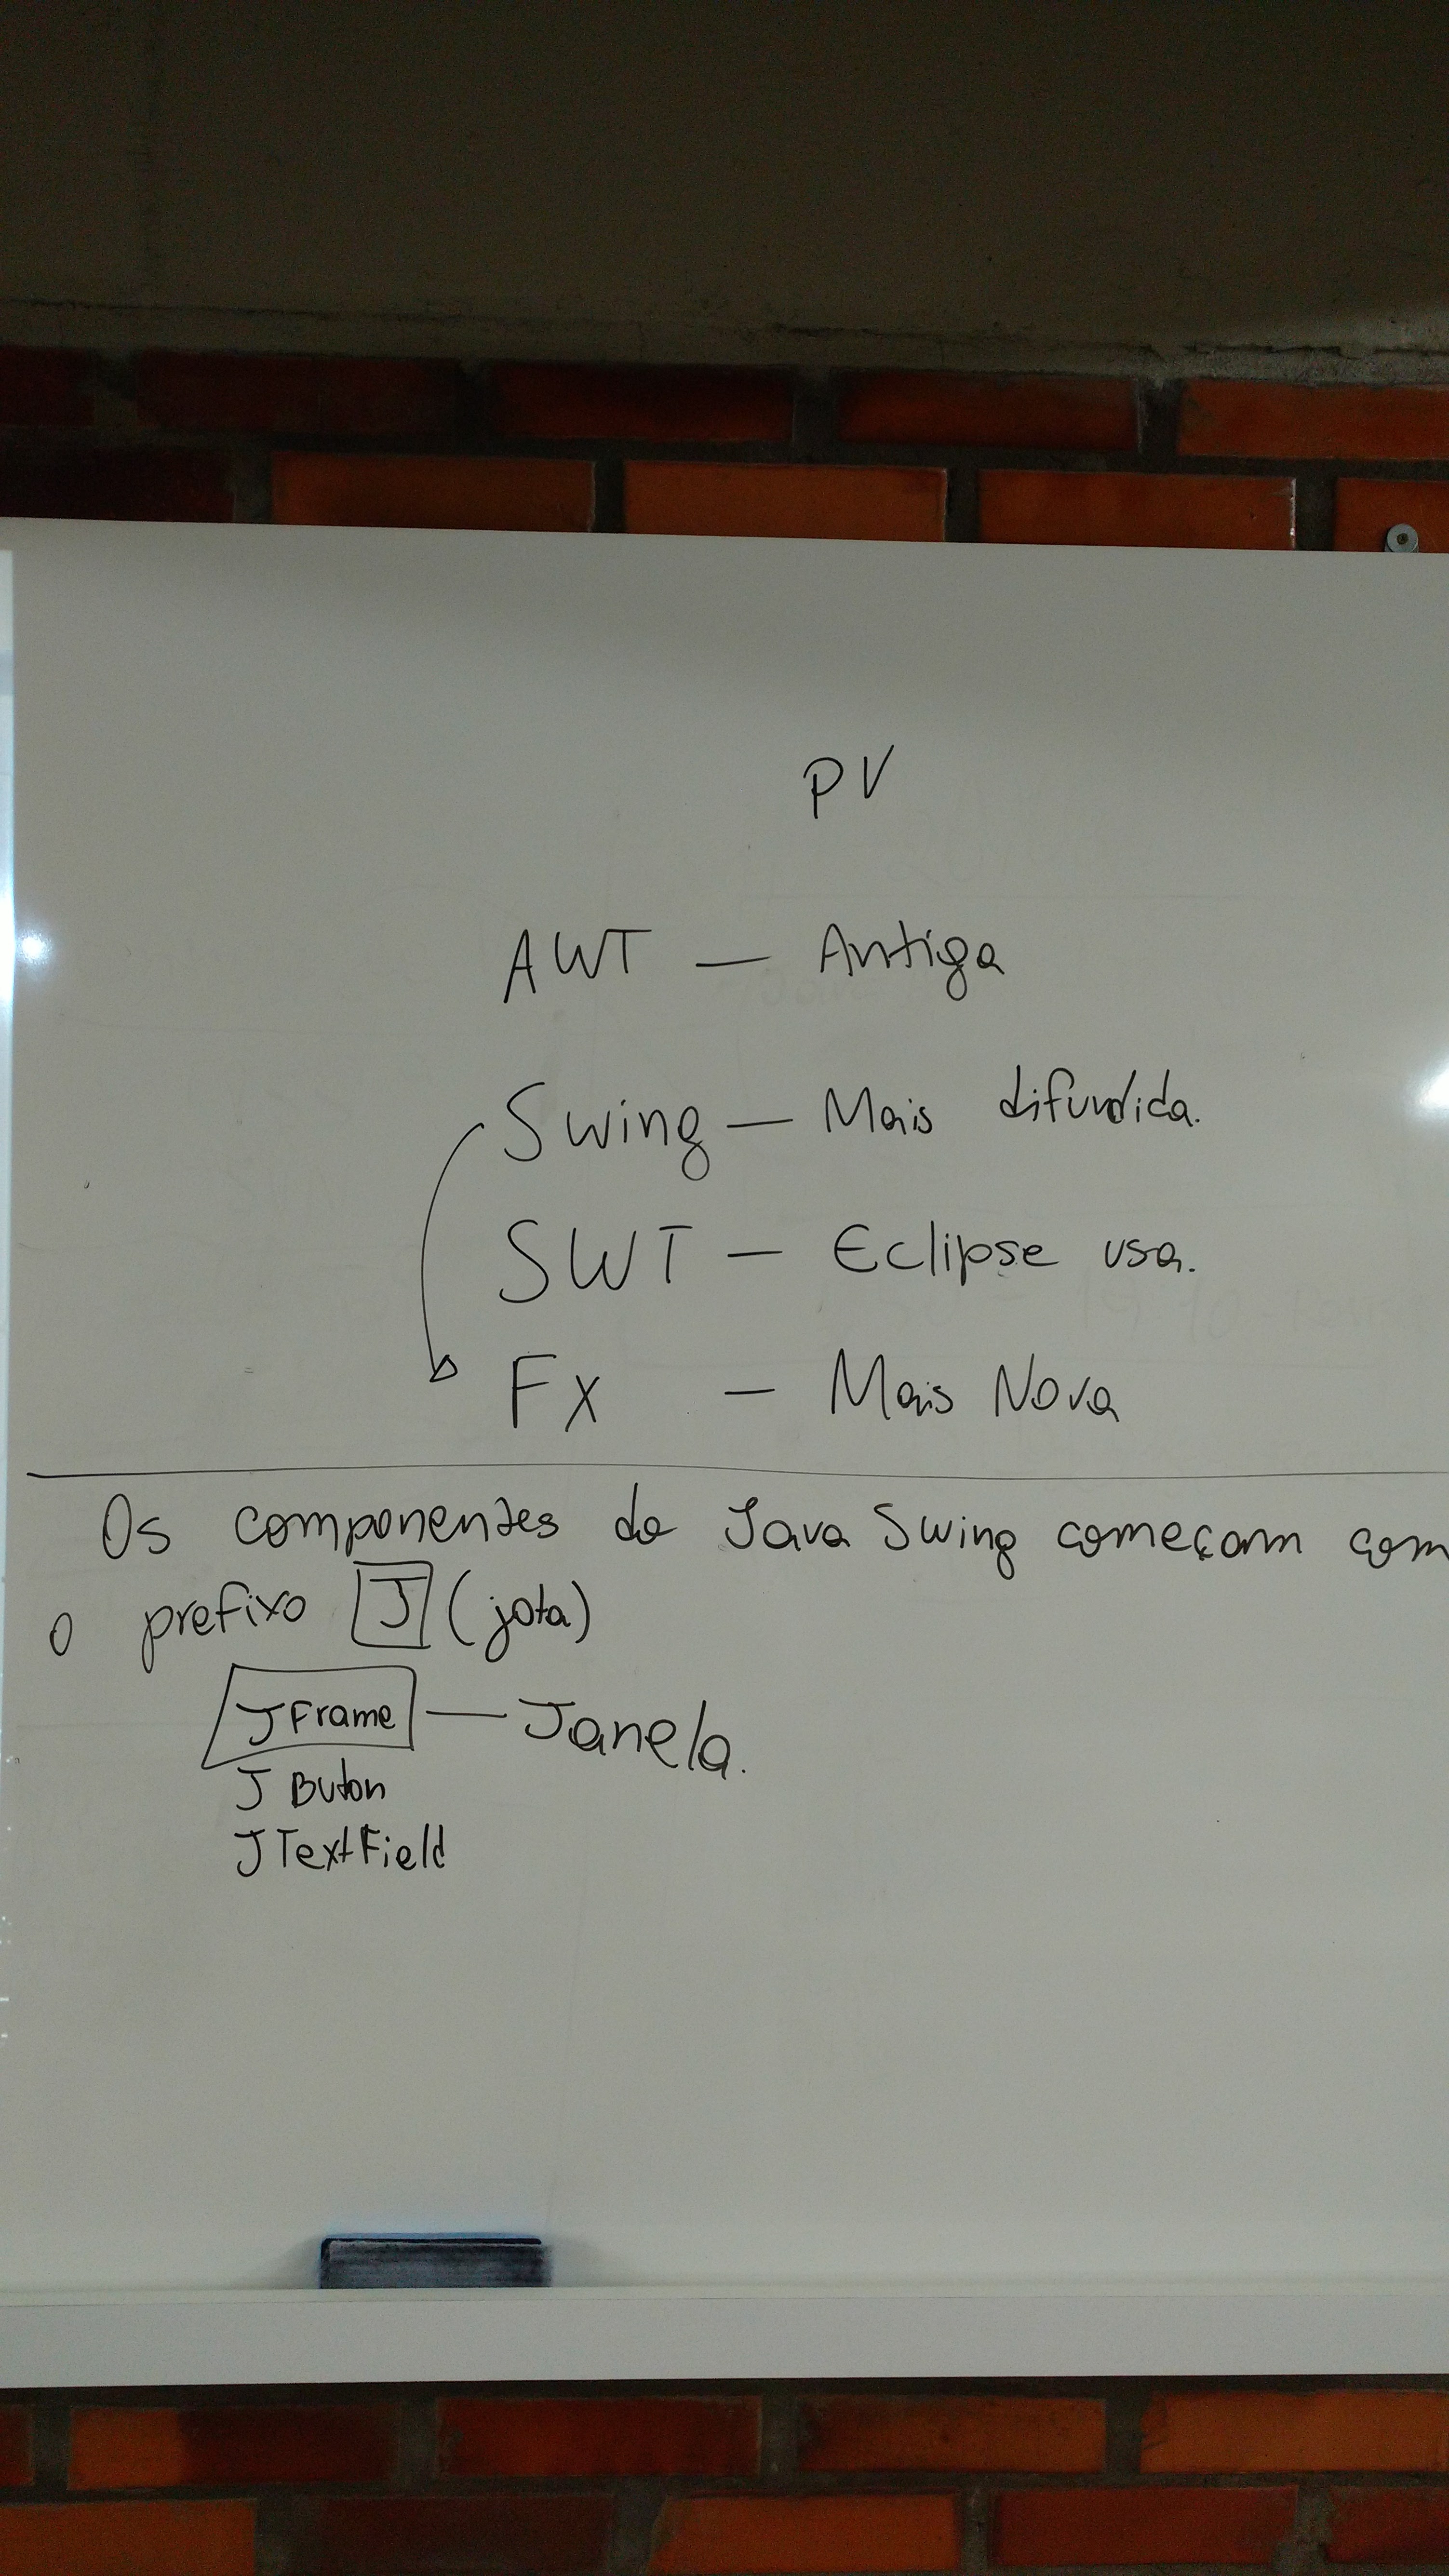 PV
AWT — Antiga
Swing — Mais difundida.
SWT — Eclipse usa.
Fx — Mais Nova
Os componentes do Java Swing começam com
o prefixo J (jota)
JFrame — Janela.
J Buton
JTextField